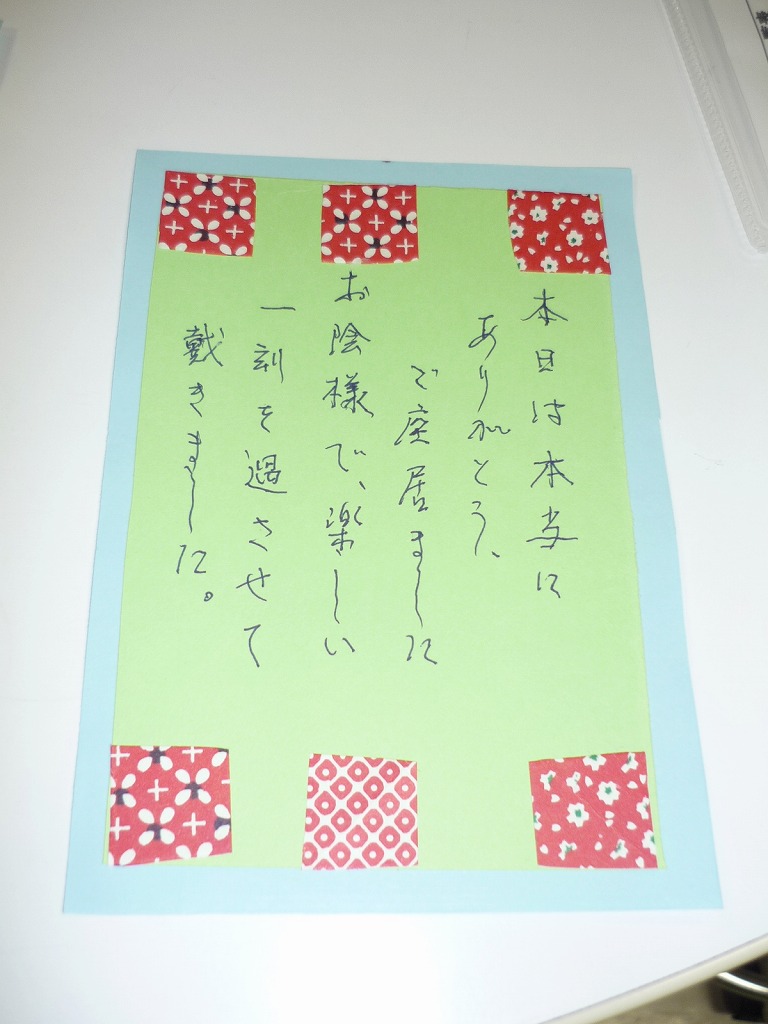 本日は本当に
ありがとう、
ご座居ました
お陰様で、楽しい
一刻を過させて
戴きました。